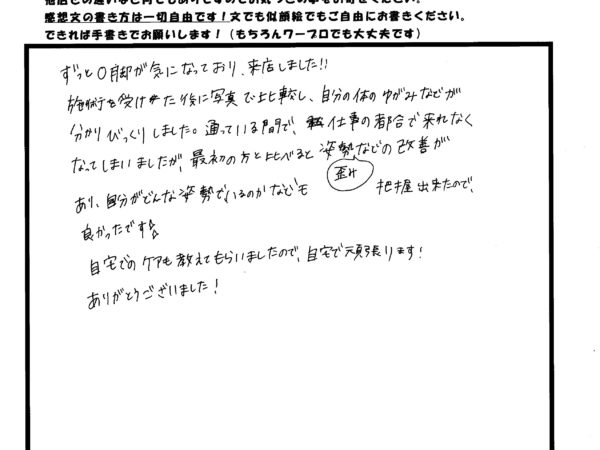 感想文の書き方は一切自由です！文でも似顔絵でもご自由にお書きください。
できれば手書きでお願いします！（もちろんワープロでも大丈夫です）
ずっとO脚が気になっており、来店しました!!
施術を受けた後に写真で比較し、自分の体のゆがみなどが
分かりびっくりしました。通っている間で、仕事の都合で来れなく
なってしまいましたが、最初の方と比べると姿勢などの改善が
歪み
あり、自分がどんな姿勢でいるのかなども 把握出来たので、
良かったです☆
自宅でのケアも教えてもらいましたので、自宅で頑張ります！
ありがとうございました！